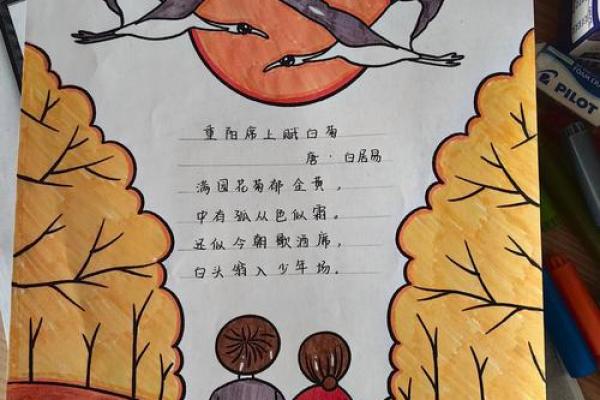 重阳席上赋白菊
唐·白居易
满园花菊郁金黄,
中有孤从色似霜。
还似今朝歌酒席,
白头翁入少年场。
PILOT